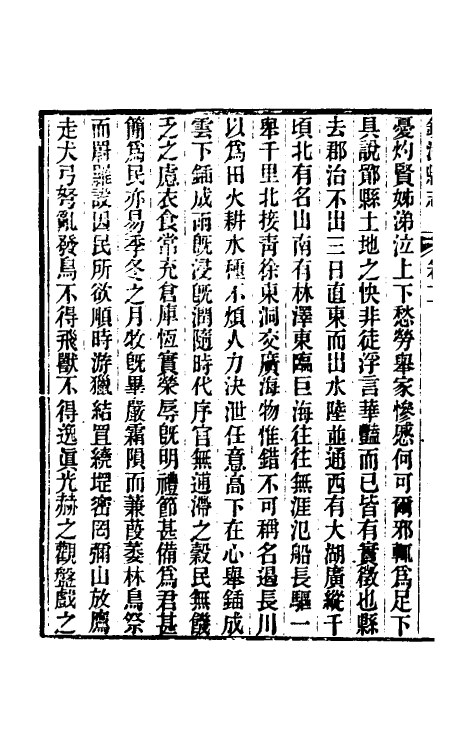 憂灼賢姊涕泣上下愁勞舉家慘慼何可爾邪輒爲足下
具說鄮縣土地之快非徒浮言華豔而已皆有實徵也縣
去郡治不出三日直東而出水陸並通西有大湖廣縱千
頃北有名山南有林澤東臨巨海往往無涯氾船長驅一
舉千里北接靑徐東洞交廣海物惟錯不可稱名遏長川
以爲田火耕水種不煩人力決泄任意高下在心舉鍤成
雲下鍤成雨旣浸旣潤隨時代序官無逋滯之穀民無饑
乏之慮衣食常充倉庫恆實榮辱旣明禮節甚備爲君甚
簡爲民亦易季冬之月牧旣畢嚴霜隕而蒹葭萎林鳥祭
而罻羅設因民所欲順時游獵結罝繞堽密罔彌山放鷹
走犬弓弩亂發鳥不得飛獸不得逸眞光赫之觀盤戲之